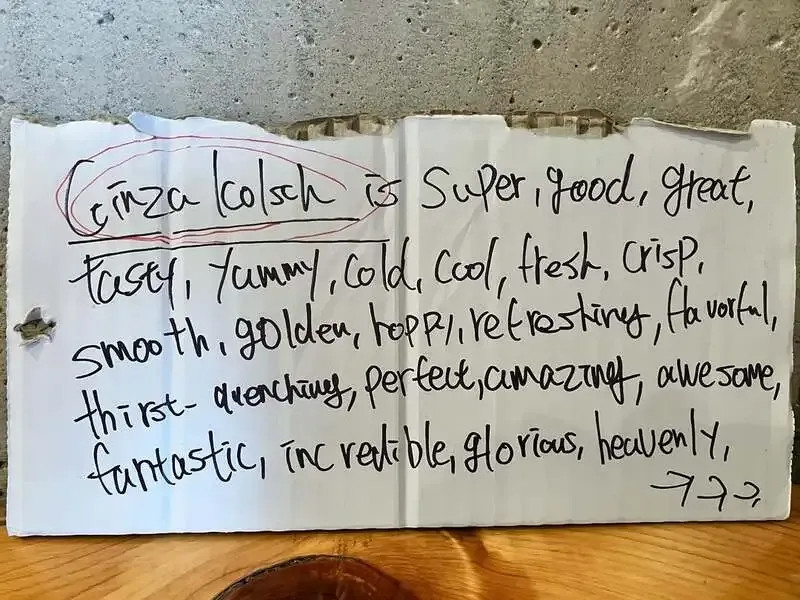 Ginza kolsch is Super, good, great,
tasty, yummy, cold, cool, fresh, crisp,
smooth, golden, hoppy, refreshing, flavorful,
thirst-quenching, perfect, amazing, awesome,
fantastic, incredible, glorious, heavenly,
→→→,